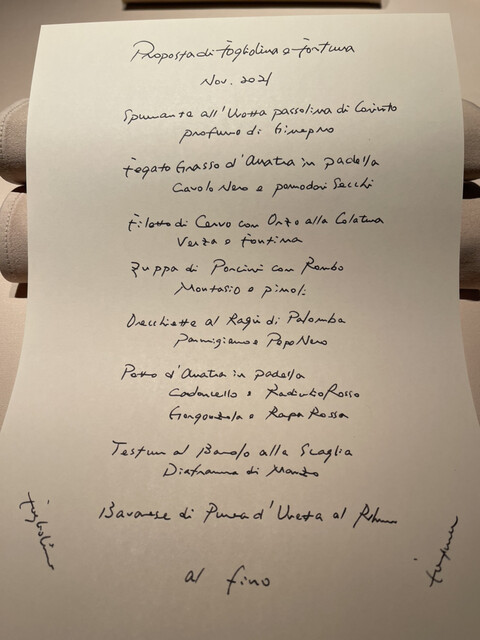 Proposta di Fogliolina e Fortuna
Nov. 2021
Spumante all'Uvetta passolina di Corinto
profumo di Ginepro
Fegato Grasso d'Anatra in padella
Cavolo Nero e pomodori Secchi
Filetto di Cervo con Orzo alla Colatura
Verza e Fontina
Zuppa di Porcini con Rombo
Montasio e pinoli
Orecchiette al Ragù di Palomba
Parmigiano e Pepe Nero
Petto d'Anatra in padella
Cardoncello e Radicchio Rosso
Gorgonzola e Rapa Rossa
Testun al Barolo alla Scaglia
Diaframma di Manzo
Bavarese di Purea d'Uvetta al Rhum
Fogliolina
Fortuna
al fino